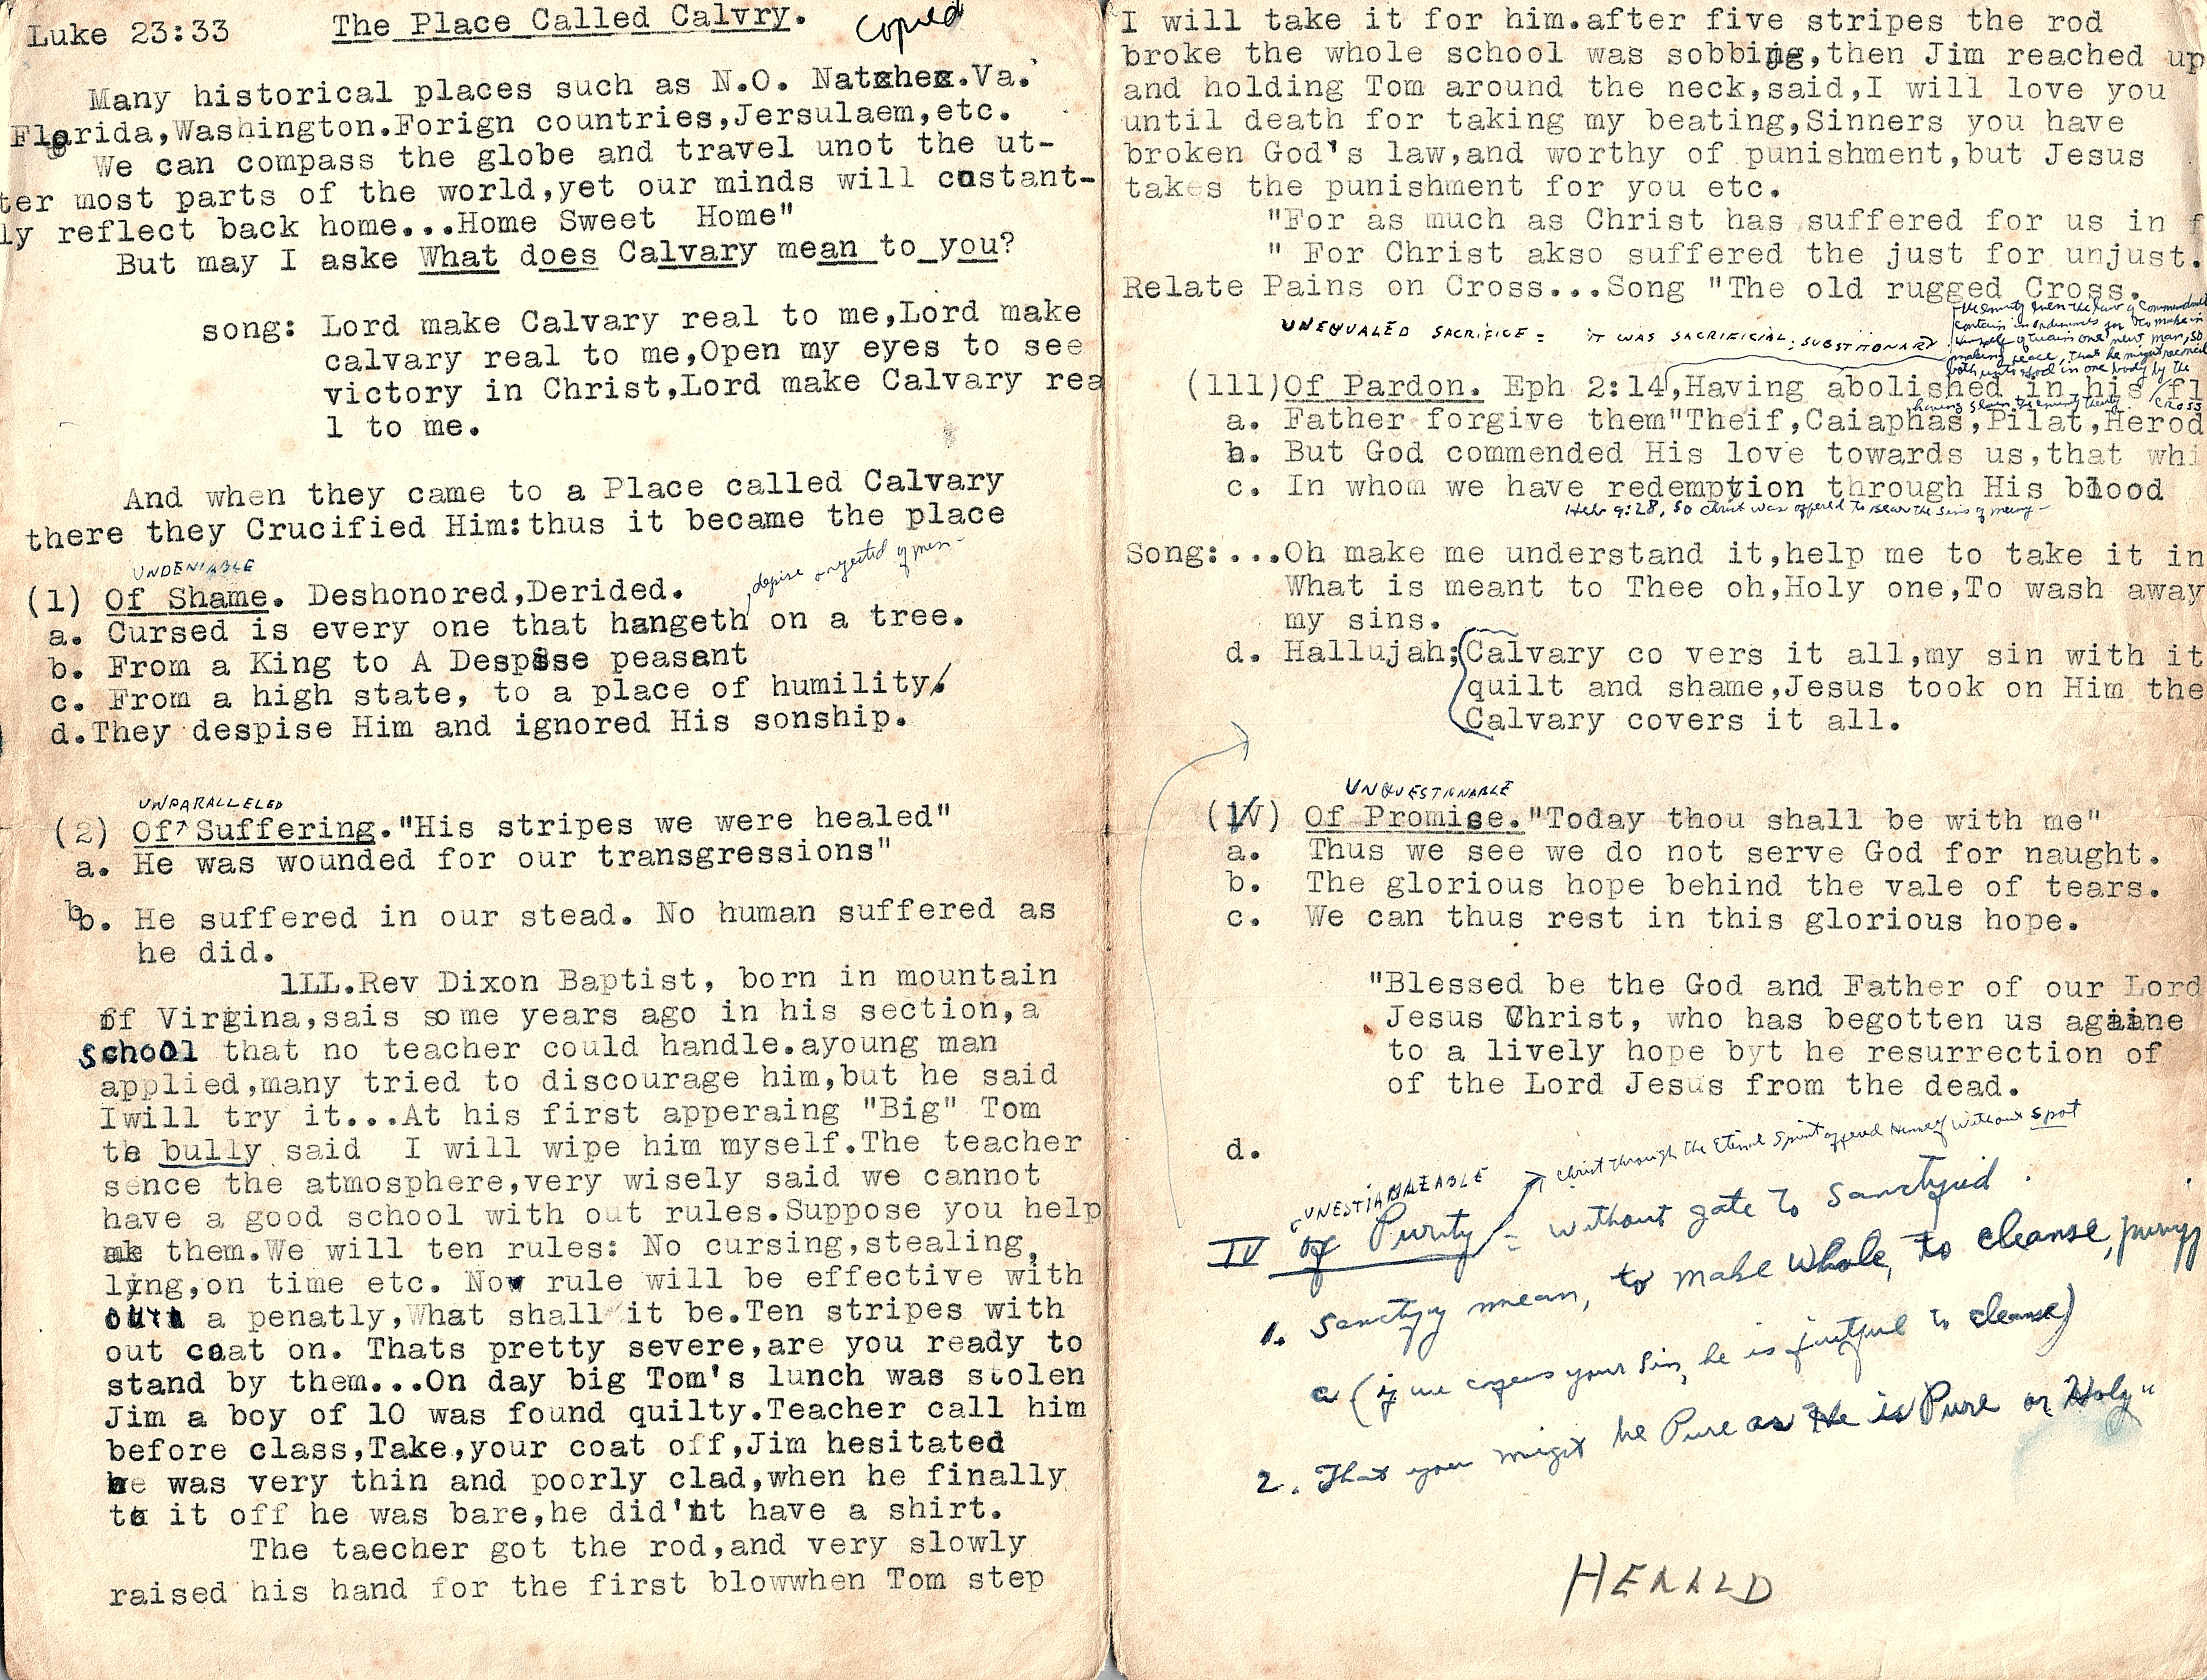 Luke 23:33 The Place Called Calvry. Copied
Many historical places such as N.O. Natchez.Va.
Florida,Washington.Forign countries,Jersulaem,etc.
We can compass the globe and travel unot the ut-
ter most parts of the world,yet our minds will costant-
ly reflect back home...Home Sweet Home"
But may I aske What does Calvary mean to you?
song: Lord make Calvary real to me,Lord make
calvary real to me,Open my eyes to see
victory in Christ,Lord make Calvary rea
l to me.
And when they came to a Place called Calvary
there they Crucified Him:thus it became the place
UNDENIABLE
depise & rejected of men-
(1) Of Shame. Deshonored,Derided.
a. Cursed is every one that hangeth on a tree.
b. From a King to A Despise peasant
c. From a high state, to a place of humility.
d.They despise Him and ignored His sonship.
UNPARALLELED
(2) Of Suffering."His stripes we were healed"
a. He was wounded for our transgressions"
b. He suffered in our stead. No human suffered as
he did.
1LL.Rev Dixon Baptist, born in mountain
of Virgina,sais some years ago in his section,a
School that no teacher could handle.ayoung man
applied,many tried to discourage him,but he said
Iwill try it...At his first apperaing "Big" Tom
te bully said I will wipe him myself.The teacher
sence the atmosphere,very wisely said we cannot
have a good school with out rules.Suppose you help
mk them.We will ten rules: No cursing,stealing,
lying,on time etc. Now rule will be effective with
out a penatly,What shall it be.Ten stripes with
out coat on. Thats pretty severe,are you ready to
stand by them...On day big Tom's lunch was stolen
Jim a boy of 10 was found quilty.Teacher call him
before class,Take,your coat off,Jim hesitated
he was very thin and poorly clad,when he finally
to it off he was bare,he did'nt have a shirt.
The taecher got the rod,and very slowly
raised his hand for the first blowwhen Tom step
I will take it for him.after five stripes the rod
broke the whole school was sobbing,then Jim reached up
and holding Tom around the neck,said,I will love you
until death for taking my beating,Sinners you have
broken God's law,and worthy of punishment,but Jesus
takes the punishment for you etc.
"For as much as Christ has suffered for us in f
" For Christ akso suffered the just for unjust.
Relate Pains on Cross...Song "The old rugged Cross.
the enmity even the law of Commandment
contain in ordinances for to make in
Himself of twain one new man, so
making peace, that he might reconcil
both unto God in one body by the
CROSS
having slain the enmity thereby
UNEQUALED SACRIFICE = IT WAS SACRIFICIAL; SUBSTITIONARY
(111)Of Pardon. Eph 2:14,Having abolished in his fl
a. Father forgive them"Theif,Caiaphas,Pilat,Herod
b. But God commended His love towards us,that whi
c. In whom we have redemption through His blood
Heb 9:28, So Christ was offered to bear the sins of many-
Song:...Oh make me understand it,help me to take it in
What is meant to Thee oh,Holy one,To wash away
my sins.
d. Hallujah;Calvary co vers it all,my sin with it
quilt and shame,Jesus took on Him the
Calvary covers it all.
UNQUESTIONABLE
(1V) Of Promise."Today thou shall be with me"
a. Thus we see we do not serve God for naught.
b. The glorious hope behind the vale of tears.
c. We can thus rest in this glorious hope.
"Blessed be the God and Father of our Lord
Jesus Christ, who has begotten us againe
to a lively hope byt he resurrection of
of the Lord Jesus from the dead.
d.
Christ through the Eternal Spirit offered Himself without spot
IV Of Purity = without gate to Sanctyied.
1. Sanctyy mean, to make whole, to cleanse, purify
a (if we confess your sin, he is faithful to cleanse)
2. That you might be Pure as He is Pure or Holy"
HERALD